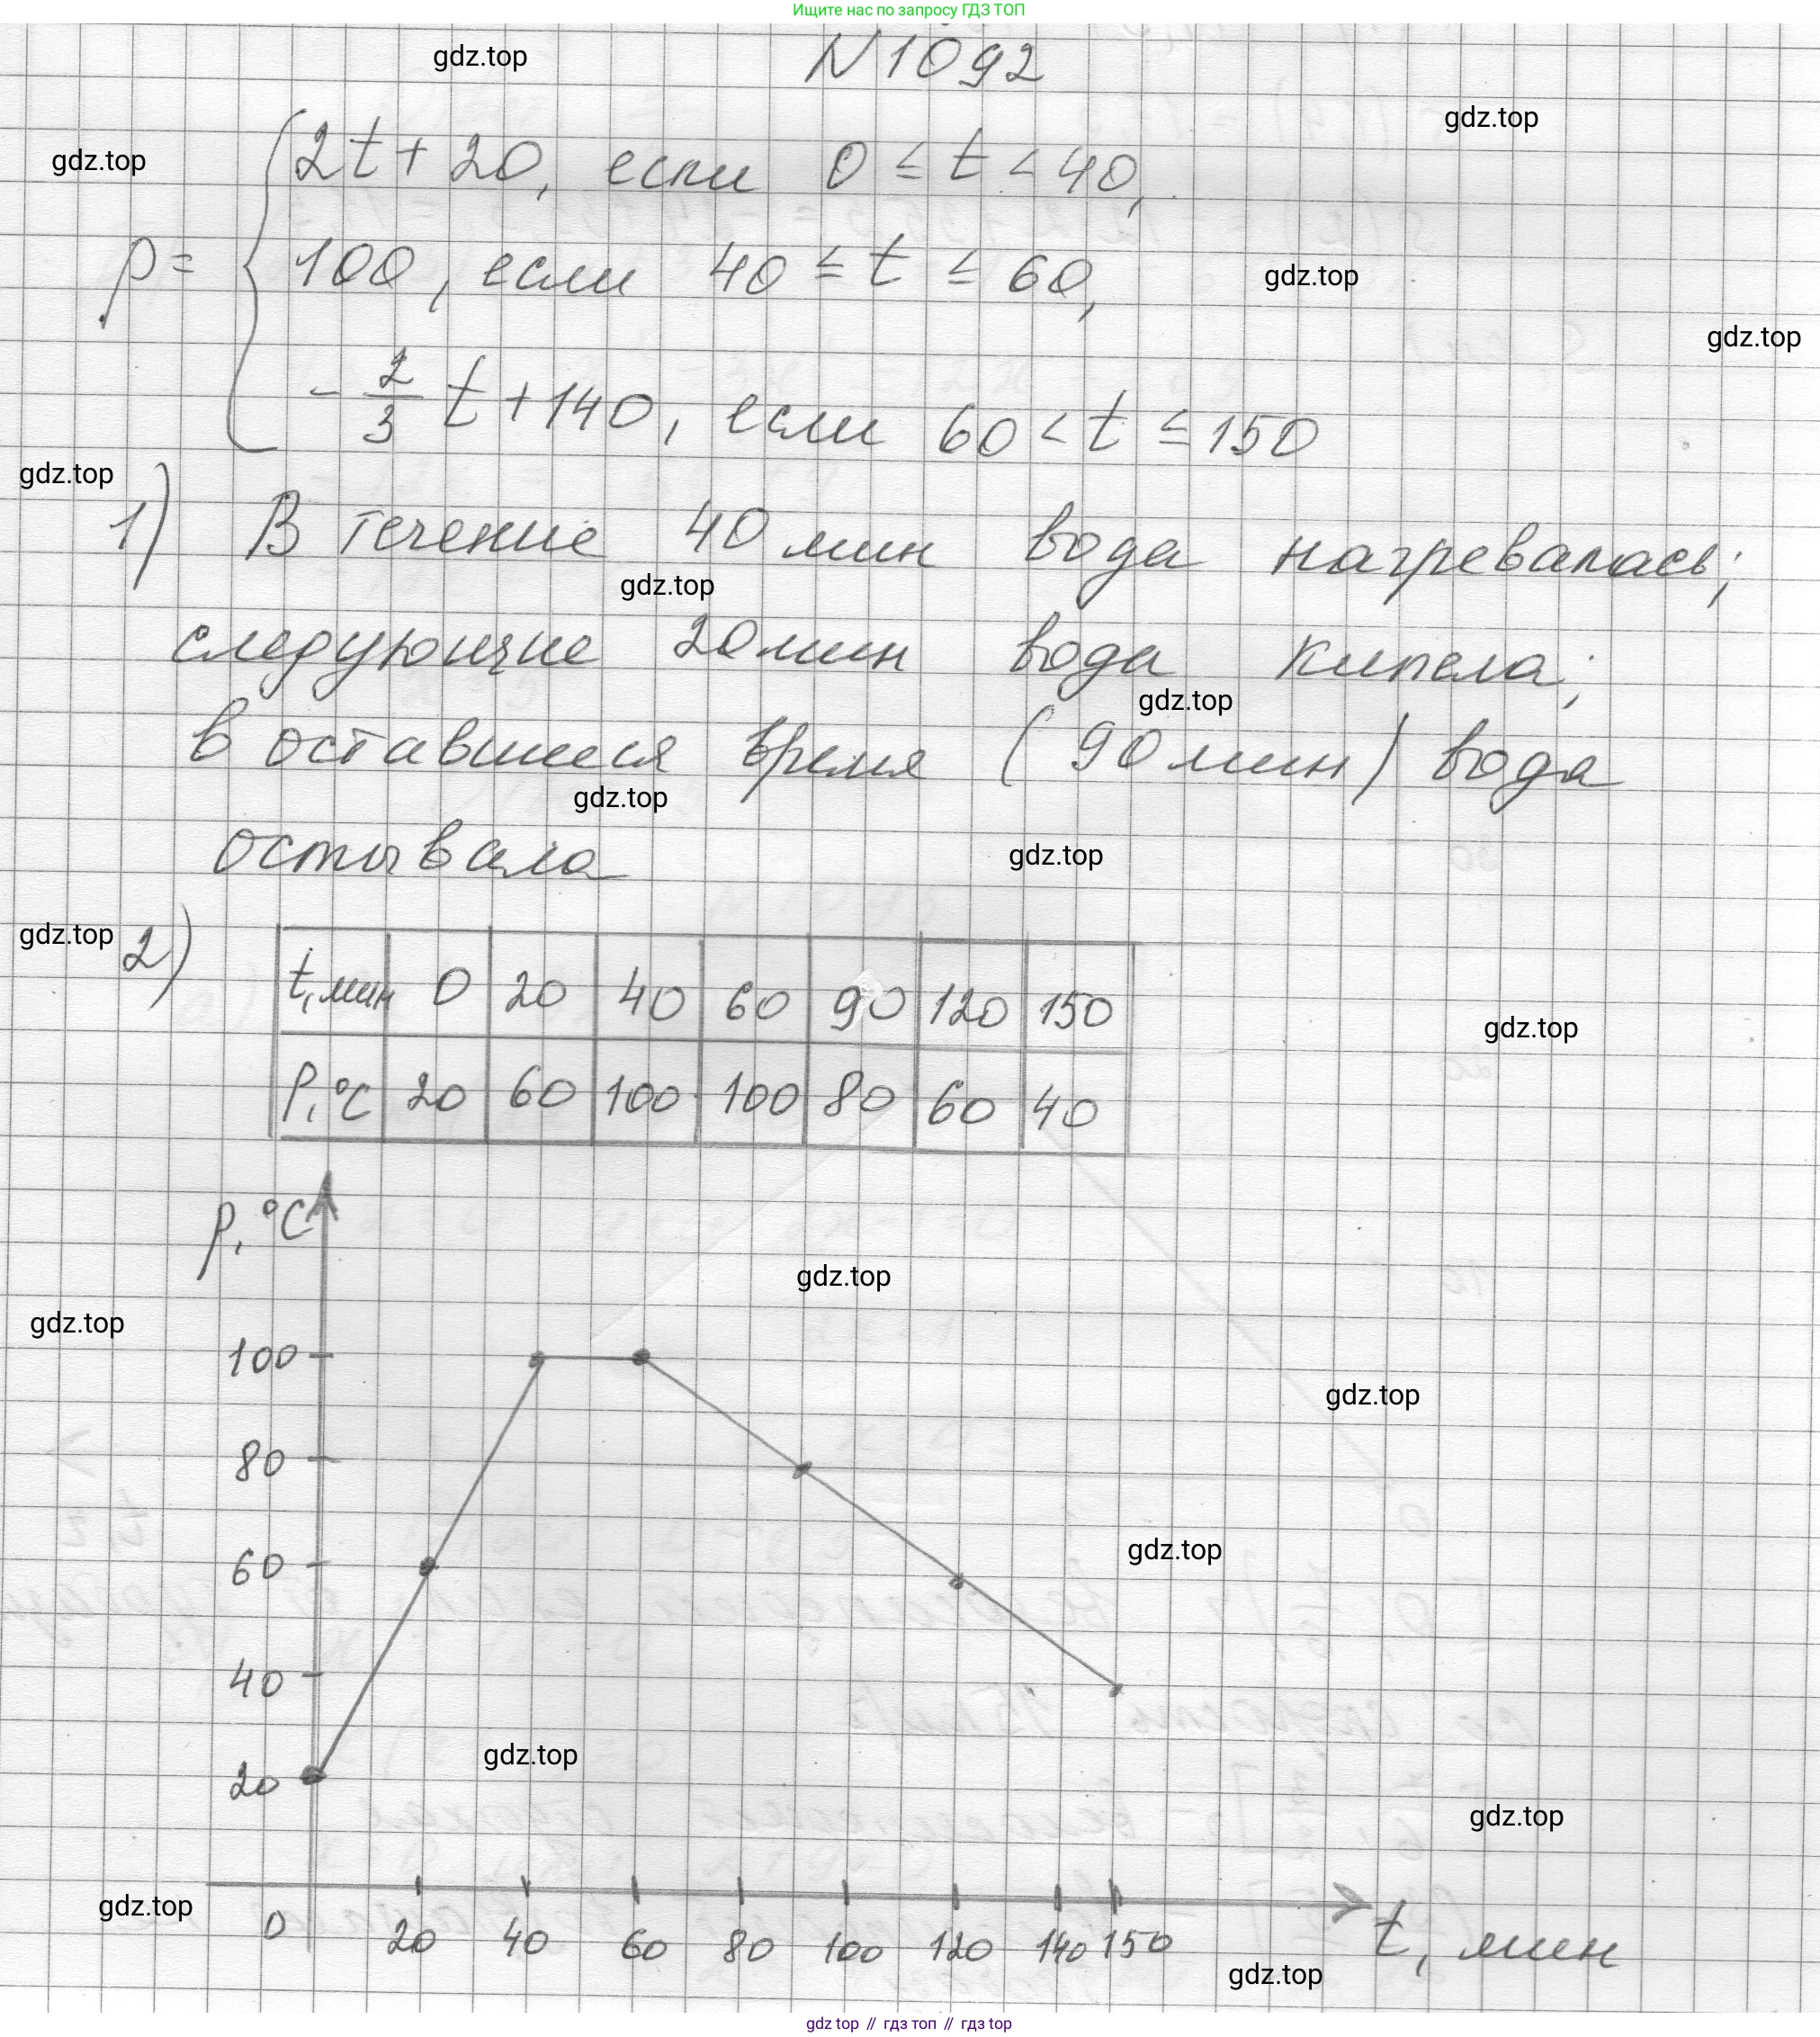 Ищите нас по запросу ГДЗ ТОП
N1092
gdz.top
gdz.top
gdz.top
p = { 2t + 20, если 0 ≤ t < 40,
100, если 40 ≤ t ≤ 60,
gdz.top
gdz.top
-2/3 t + 140, если 60 < t ≤ 150
gdz.top
1) В течение 40 мин вода нагревалась;
gdz.top
следующие 20 мин вода кипела;
gdz.top
в оставшееся время (90 мин) вода
gdz.top
остывала
gdz.top
gdz.top
2)
t, мин 0 20 40 60 90 120 150
gdz.top
P, °C 20 60 100 100 80 60 40
p, °C
gdz.top
gdz.top
100
gdz.top
80
gdz.top
60
40
gdz.top
20
gdz.top
gdz.top
0 20 40 60 80 100 120 140 150 t, мин
gdz.top
gdz top // гдз топ // gdz top